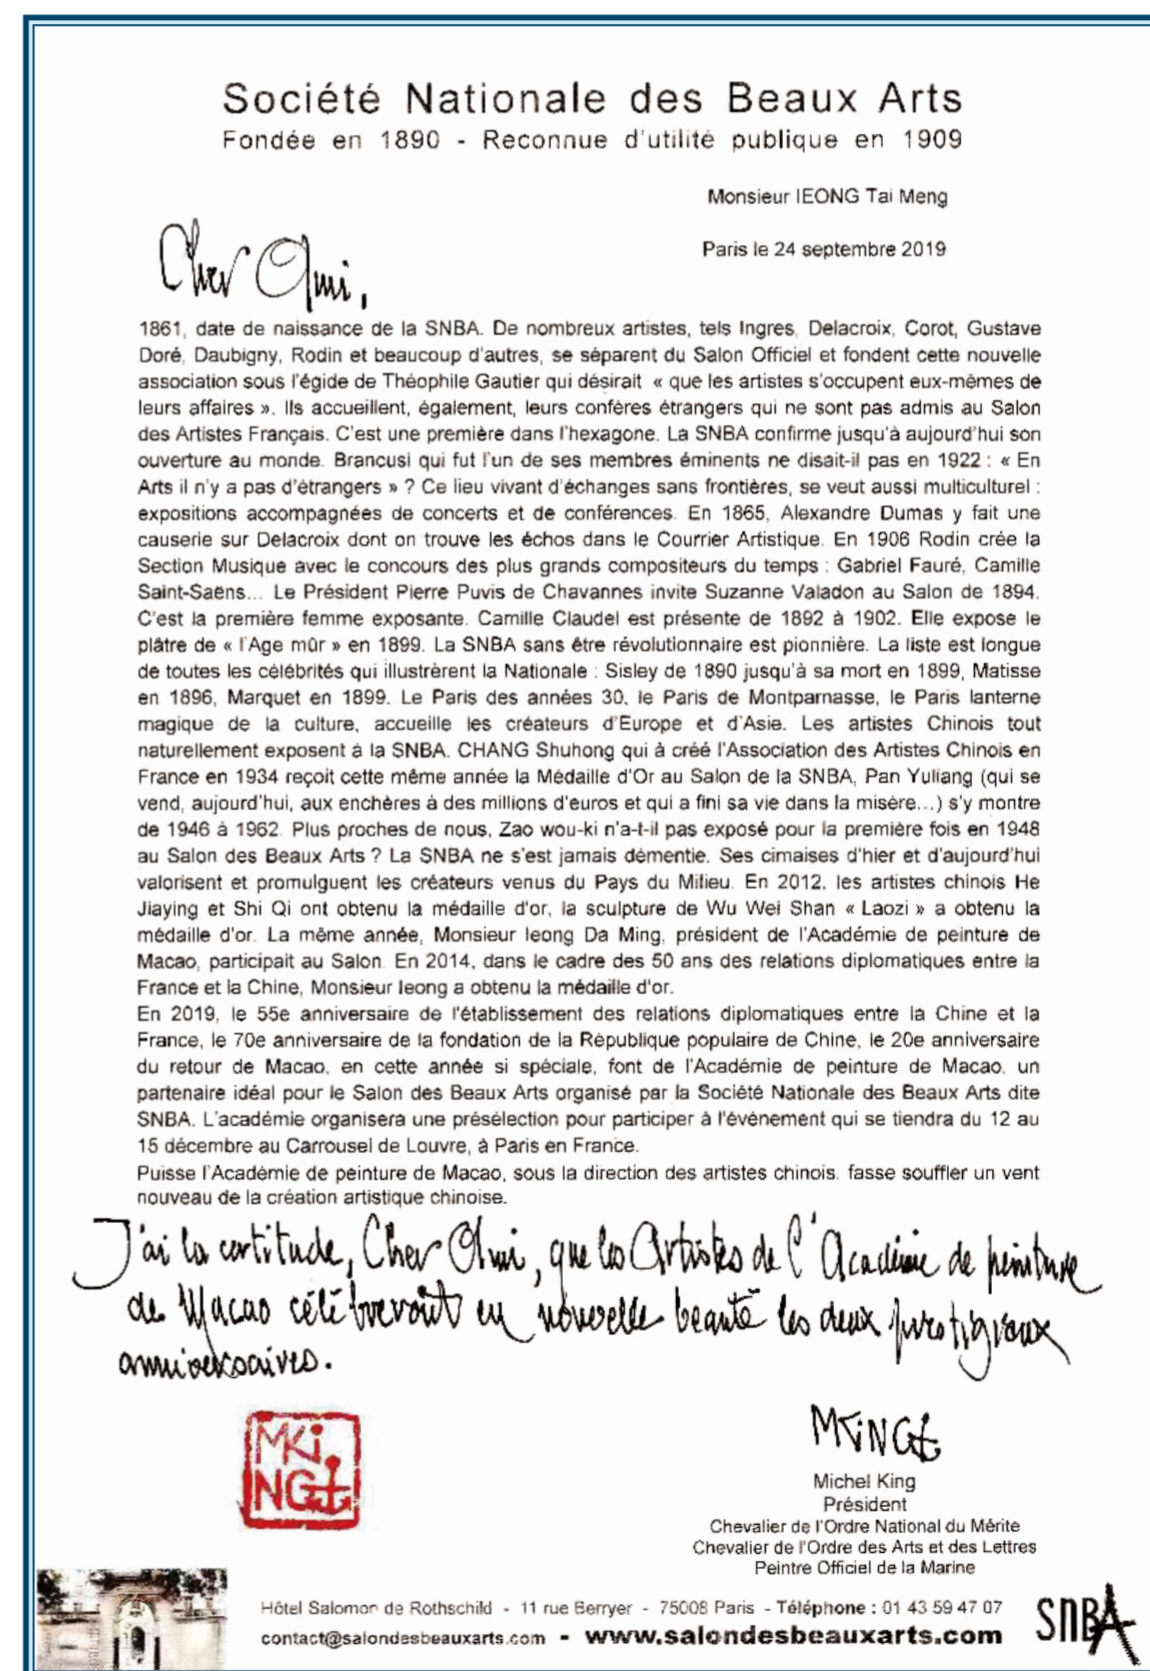 Société Nationale des Beaux Arts
Fondée en 1890 - Reconnue d'utilité publique en 1909
Monsieur IEONG Tai Meng
Paris le 24 septembre 2019
Cher Ami,
1861, date de naissance de la SNBA. De nombreux artistes, tels Ingres, Delacroix, Corot, Gustave
Doré, Daubigny, Rodin et beaucoup d'autres, se séparent du Salon Officiel et fondent cette nouvelle
association sous l'égide de Théophile Gautier qui désirait « que les artistes s'occupent eux-mêmes de
leurs affaires ». Ils accueillent, également, leurs confères étrangers qui ne sont pas admis au Salon
des Artistes Français. C'est une première dans l'hexagone. La SNBA confirme jusqu'à aujourd'hui son
ouverture au monde. Brancusi qui fut l'un de ses membres éminents ne disait-il pas en 1922 : « En
Arts il n'y a pas d'étrangers » ? Ce lieu vivant d'échanges sans frontières, se veut aussi multiculturel :
expositions accompagnées de concerts et de conférences. En 1865, Alexandre Dumas y fait une
causerie sur Delacroix dont on trouve les échos dans le Courrier Artistique. En 1906 Rodin crée la
Section Musique avec le concours des plus grands compositeurs du temps : Gabriel Fauré, Camille
Saint-Saëns... Le Président Pierre Puvis de Chavannes invite Suzanne Valadon au Salon de 1894.
C'est la première femme exposante. Camille Claudel est présente de 1892 à 1902. Elle expose le
plâtre de « l'Age mûr » en 1899. La SNBA sans être révolutionnaire est pionnière. La liste est longue
de toutes les célébrités qui illustrèrent la Nationale : Sisley de 1890 jusqu'à sa mort en 1899, Matisse
en 1896, Marquet en 1899. Le Paris des années 30, le Paris de Montparnasse, le Paris lanterne
magique de la culture, accueille les créateurs d'Europe et d'Asie. Les artistes Chinois tout
naturellement exposent à la SNBA. CHANG Shuhong qui à créé l'Association des Artistes Chinois en
France en 1934 reçoit cette même année la Médaille d'Or au Salon de la SNBA, Pan Yuliang (qui se
vend, aujourd'hui, aux enchères à des millions d'euros et qui a fini sa vie dans la misère...) s'y montre
de 1946 à 1962. Plus proches de nous, Zao wou-ki n'a-t-il pas exposé pour la première fois en 1948
au Salon des Beaux Arts ? La SNBA ne s'est jamais démentie. Ses cimaises d'hier et d'aujourd'hui
valorisent et promulguent les créateurs venus du Pays du Milieu. En 2012, les artistes chinois He
Jiaying et Shi Qi ont obtenu la médaille d'or, la sculpture de Wu Wei Shan « Laozi » a obtenu la
médaille d'or. La même année, Monsieur Ieong Da Ming, président de l'Académie de peinture de
Macao, participait au Salon. En 2014, dans le cadre des 50 ans des relations diplomatiques entre la
France et la Chine, Monsieur Ieong a obtenu la médaille d'or.
En 2019, le 55e anniversaire de l'établissement des relations diplomatiques entre la Chine et la
France, le 70e anniversaire de la fondation de la République populaire de Chine, le 20e anniversaire
du retour de Macao, en cette année si spéciale, font de l'Académie de peinture de Macao, un
partenaire idéal pour le Salon des Beaux Arts organisé par la Société Nationale des Beaux Arts dite
SNBA. L'académie organisera une présélection pour participer à l'événement qui se tiendra du 12 au
15 décembre au Carrousel de Louvre, à Paris en France.
Puisse l'Académie de peinture de Macao, sous la direction des artistes chinois, fasse souffler un vent
nouveau de la création artistique chinoise.
J'ai la certitude, Cher Ami, que les Artistes de l'Académie de peinture
de Macao célébreront en nouvelle beauté les deux prestigieux
anniversaires.
MKi
NG
MKiNG
Michel King
Président
Chevalier de l'Ordre National du Mérite
Chevalier de l'Ordre des Arts et des Lettres
Peintre Officiel de la Marine
Hôtel Salomon de Rothschild - 11 rue Berryer - 75008 Paris - Téléphone : 01 43 59 47 07
contact@salondesbeauxarts.com - www.salondesbeauxarts.com
SNBA